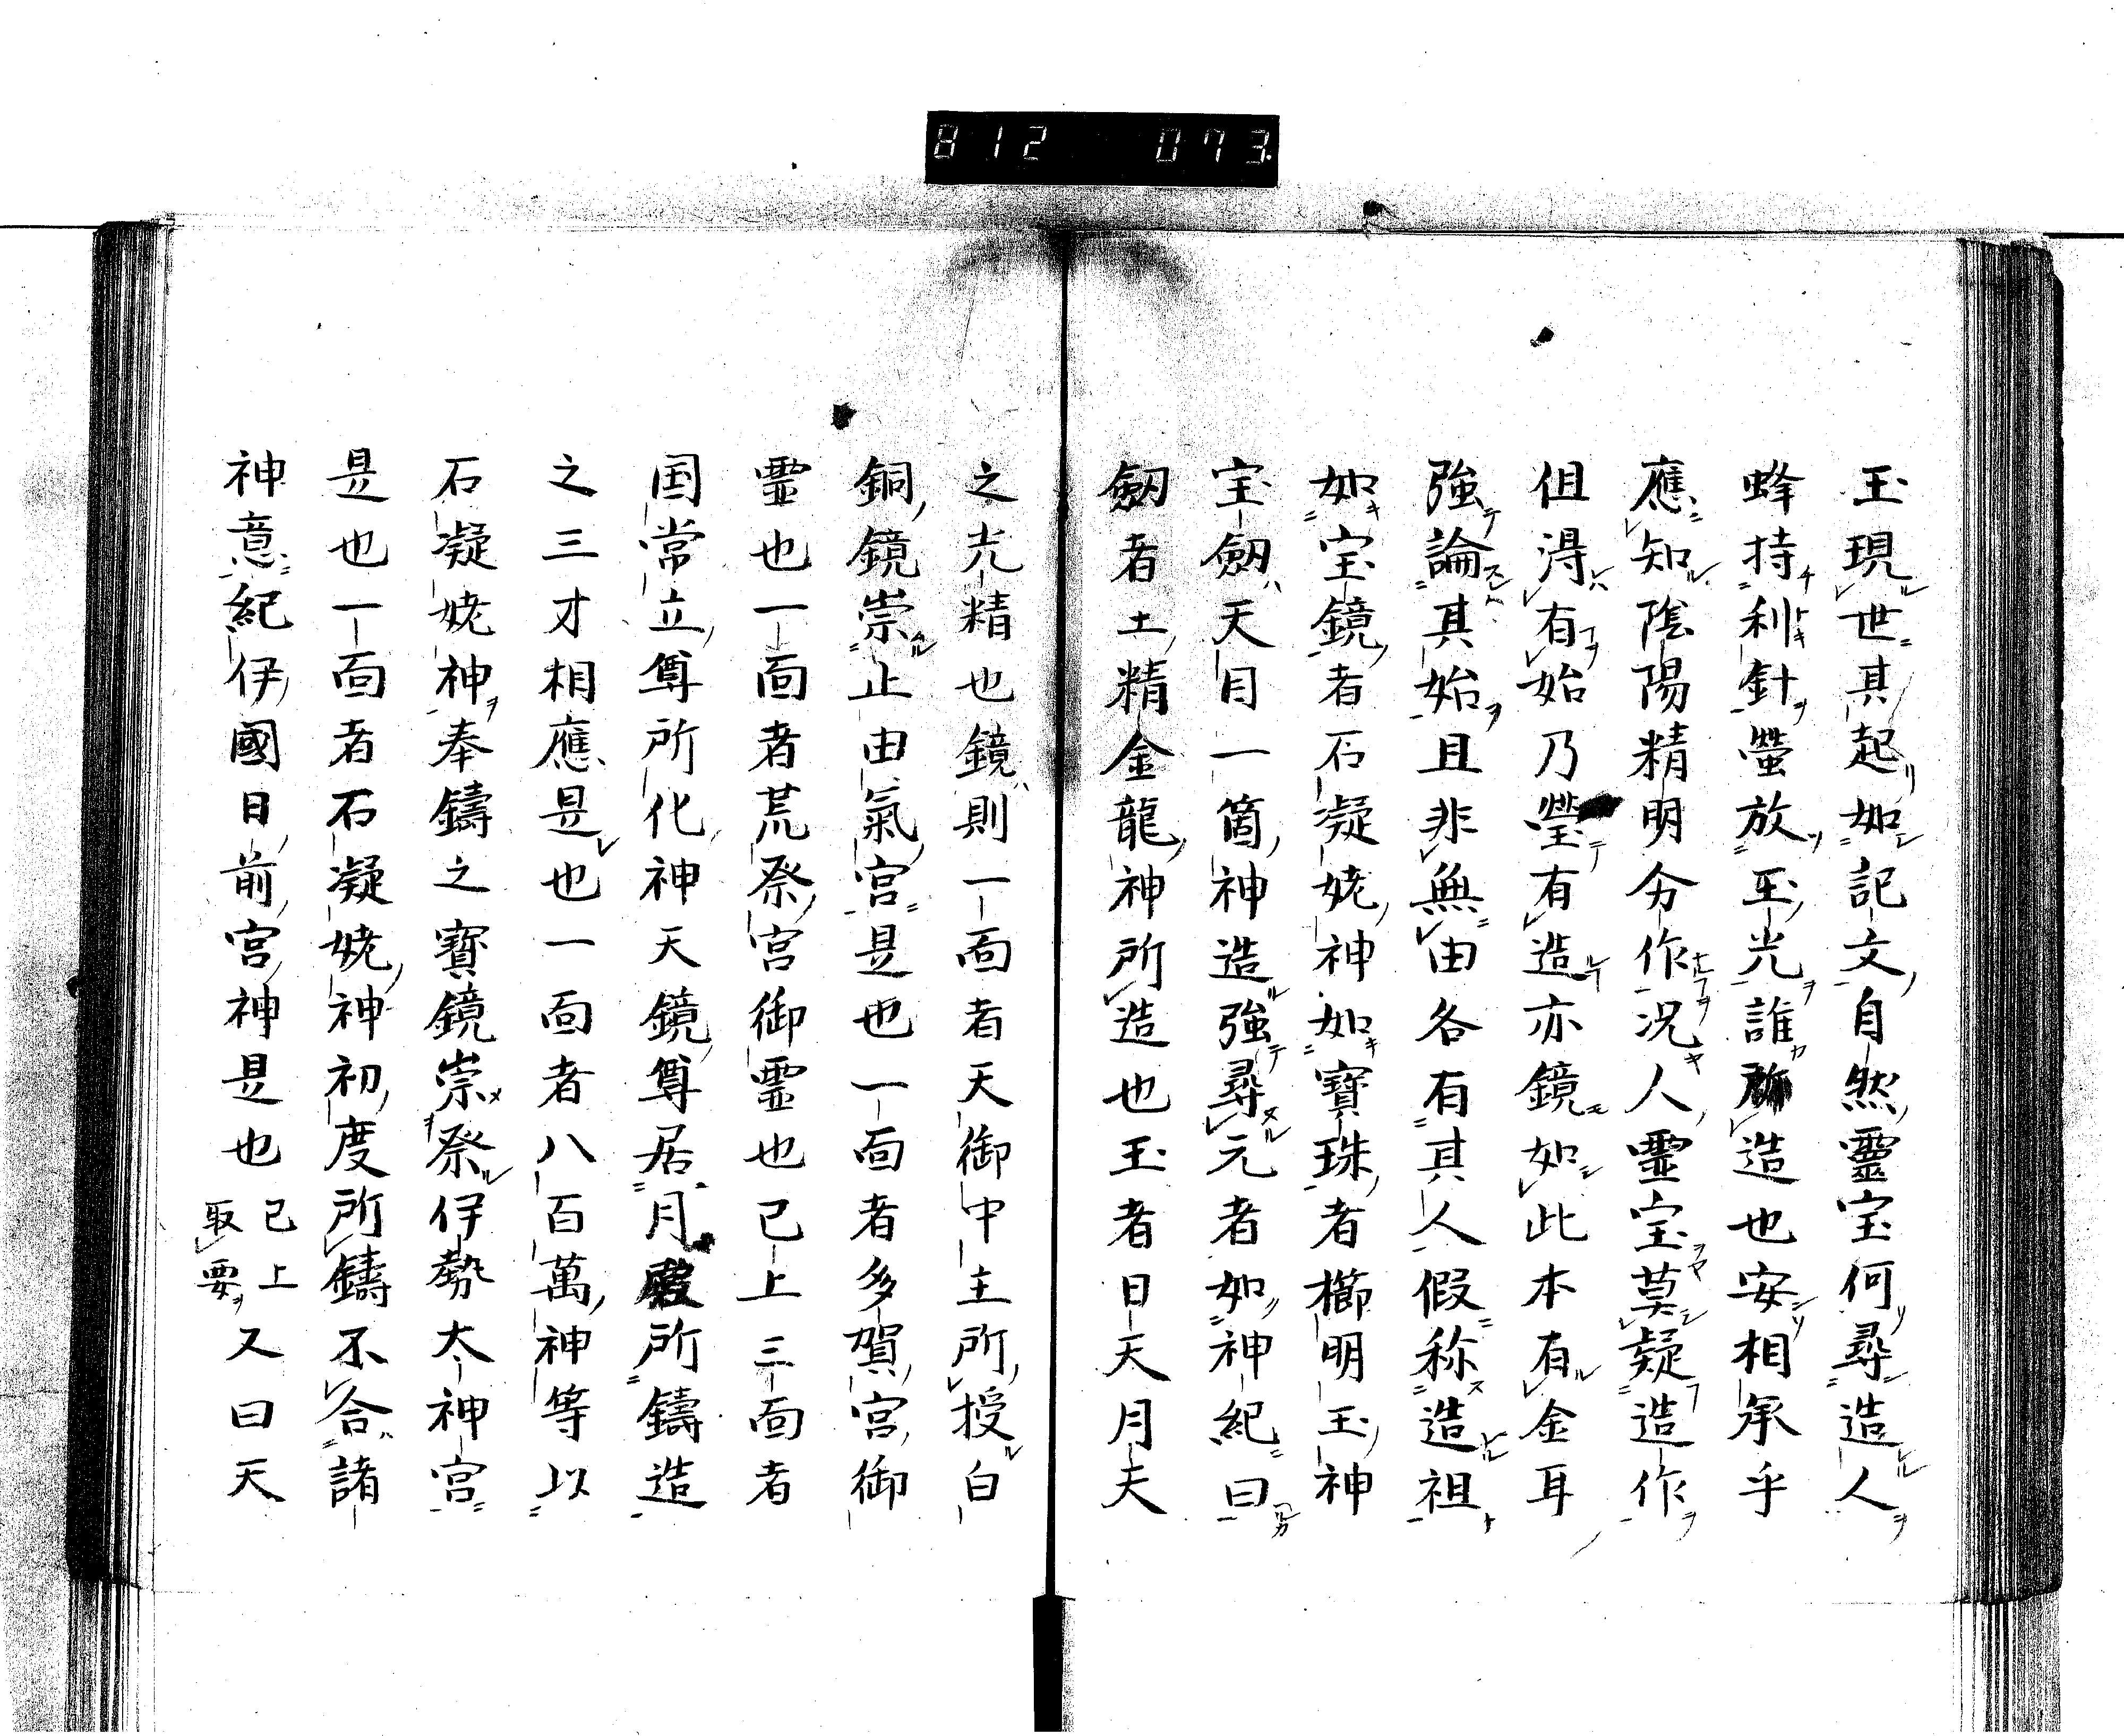 812 073
玉現世其起如記文自然靈宝何尋造人
蜂持利針螢放玉光誰造也安相承乎
應知陰陽精明分作况人霊宝莫疑造作
但淂有始乃瑩有造亦鏡如此本有金耳
強論其始且非無由各有其人假称造祖
如宝鏡者石凝姥神如寶珠者櫛明玉神
宝劔天目一箇神造強尋元者如神紀曰
劔者土精金龍神所造也玉者日天月天
之光精也鏡則一面者天御中主所授白
銅鏡崇止由氣宮是也一面者多賀宮御
霊也一面者荒祭宮御霊也已上三面者
国常立尊所化神天鏡尊居月殿所鑄造
之三才相應是也一面者八百萬神等以
石凝姥神奉鑄之寶鏡崇祭伊勢太神宮
是也一面者石凝姥神初度所鑄不合諸
神意紀伊國日前宮神是也已上取要又曰天